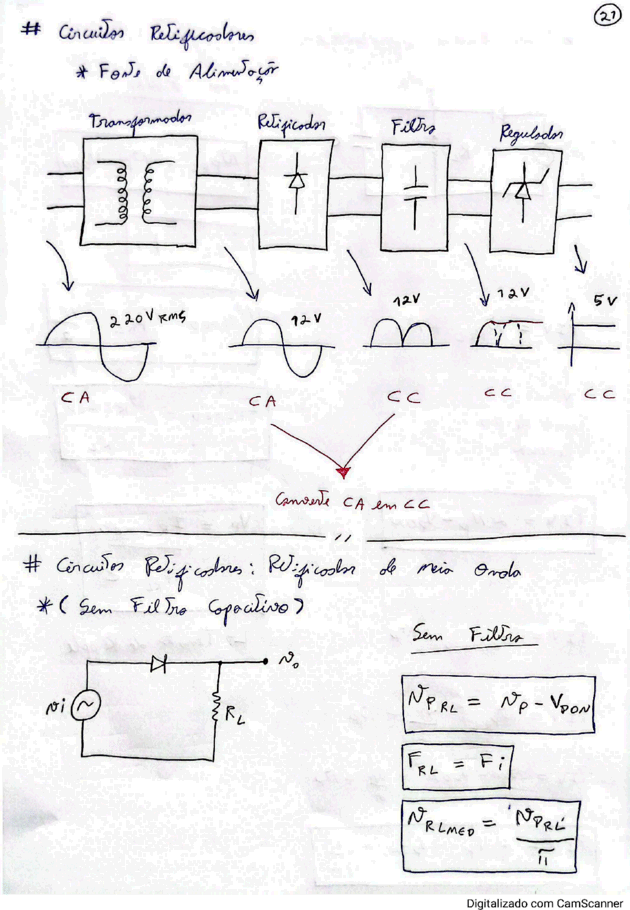 21
# Circuitos Retificadores
* Fonte de Alimentação
Transformador Retificador Filtro Regulador
220V RMS 12V 12V 12V 5V
CA CA CC CC CC
Converte CA em CC
# Circuitos Retificadores: Retificador de meia onda
* (Sem Filtro Capacitivo)
Sem Filtro
vo
vi
RL
VPRL = VP - VDON
FRL = Fi
VRLMED = VPRL / π
Digitalizado com CamScanner